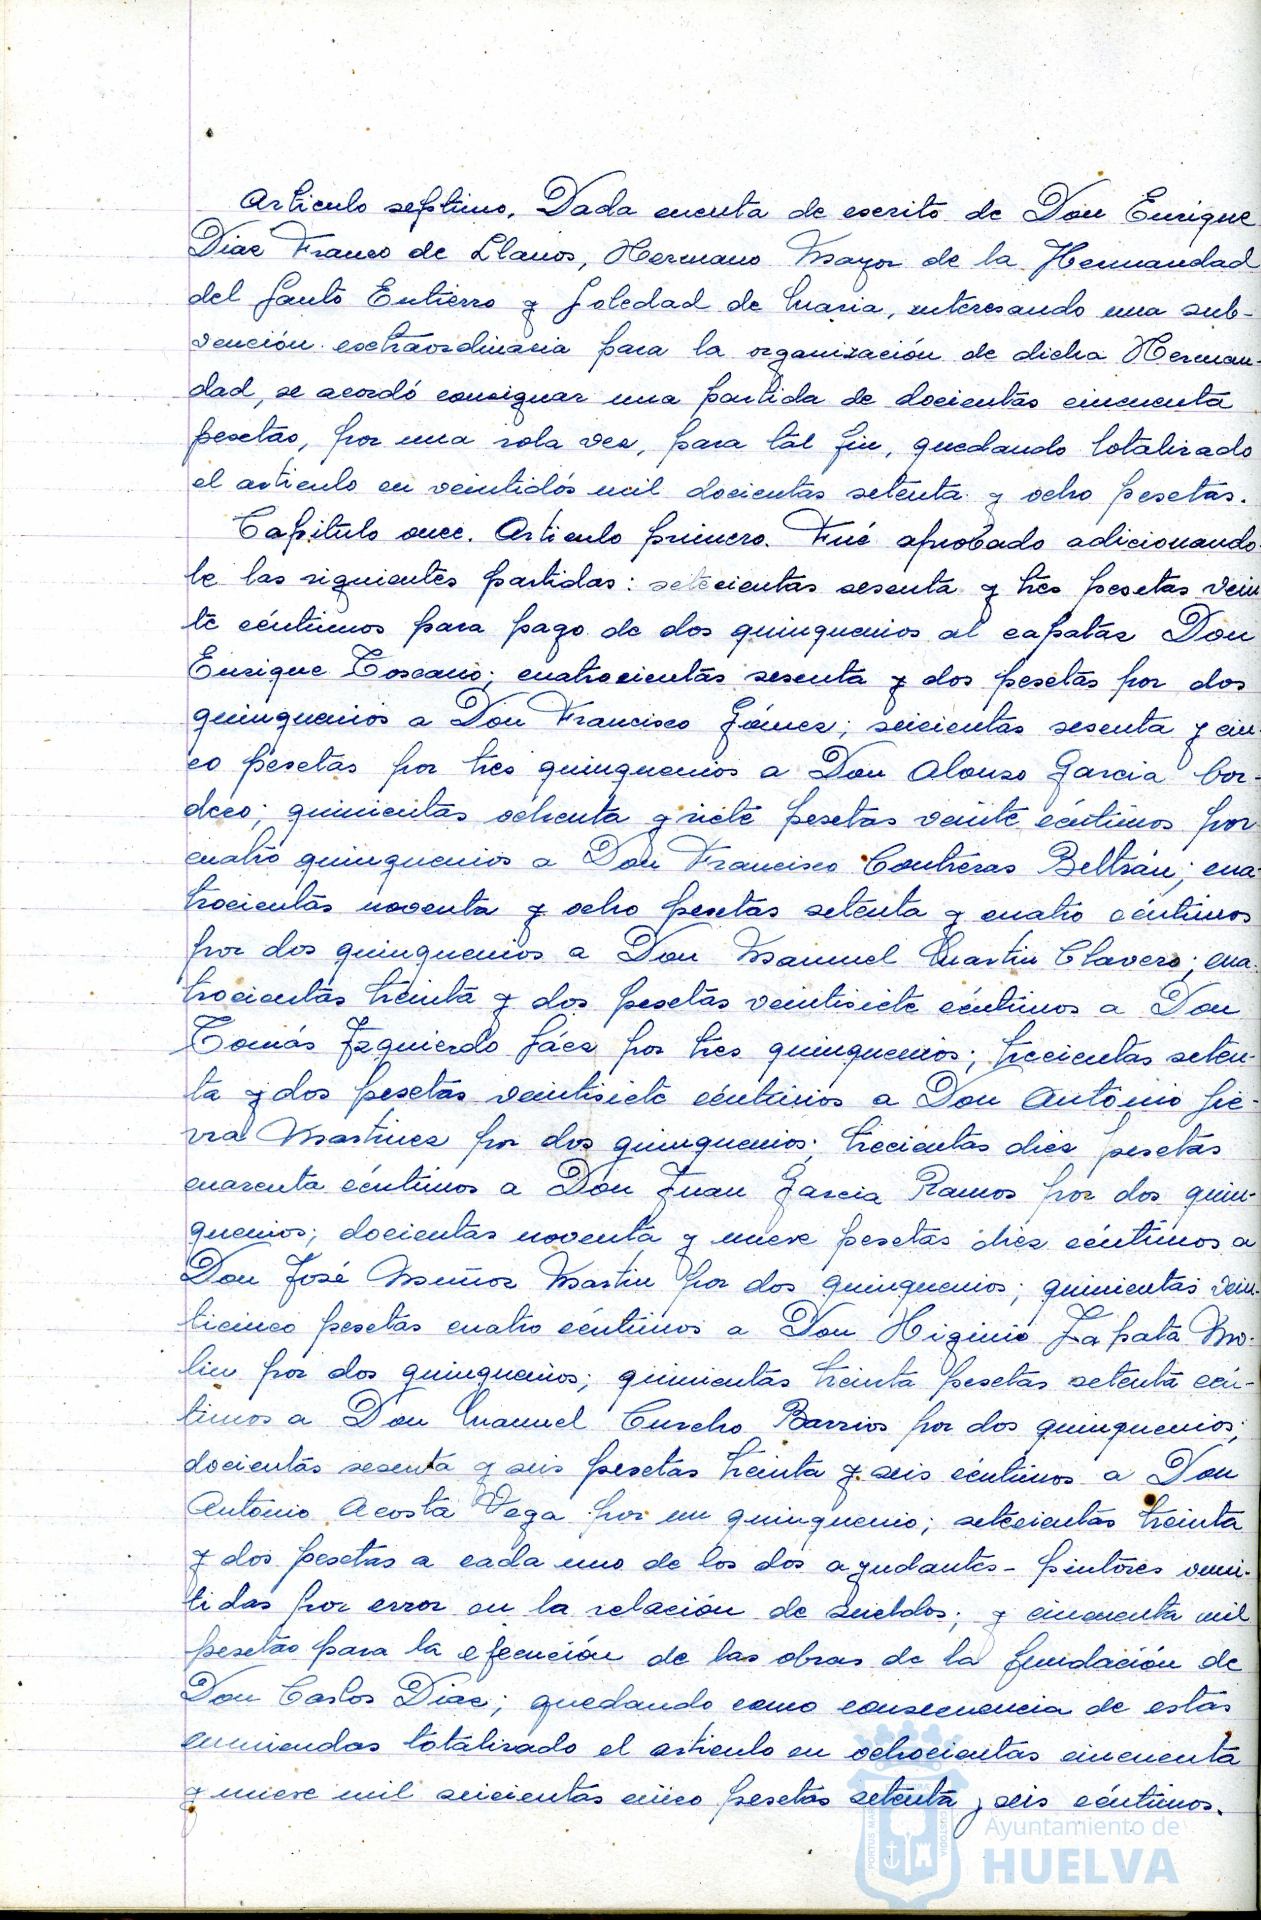 Articulo septimo. Dada cuenta de escrito de Don Enrique
Diaz Franco de Llanos, Hermano Mayor de la Hermandad
del Santo Entierro y Soledad de Maria, interesando una sub-
vención extraordinaria para la organización de dicha Herman-
dad, se acordó consignar una partida de docientas cincuenta
pesetas, por una sola vez, para tal fin, quedando totalizado
el articulo en veintidós mil docientas setenta y ocho pesetas.
Capitulo once. Articulo primero. Fué aprobado adicionando-
le las siguientes partidas: setecientas sesenta y tres pesetas vein
te céntimos para pago de dos quinquenios al capataz Don
Enrique Toscano; cuatrocientas sesenta y dos pesetas por dos
quinquenios a Don Francisco Gómez; seicientas sesenta y cin-
co pesetas por tres quinquenios a Don Alonso Garcia Cor-
dero; quinientas ochenta y siete pesetas veinte céntimos por
cuatro quinquenios a Don Francisco Contreras Beltrán; cua-
trocientas noventa y ocho pesetas setenta y cuatro céntimos
por dos quinquenios a Don Manuel Martin Clavero; cua-
trocientas treinta y dos pesetas veintisiete céntimos a Don
Tomás Izquierdo Sáez por tres quinquenios; trecientas seten-
ta y dos pesetas veintisiete céntimos a Don Antonio Sie-
rra Martinez por dos quinquenios; trecientas diez pesetas
cuarenta céntimos a Don Juan Garcia Ramos por dos quin-
quenios; docientas noventa y nueve pesetas diez céntimos a
Don José Muñoz Martin por dos quinquenios; quinientas vein-
ticinco pesetas cuatro céntimos a Don Higinio Zapata Mo-
lin por dos quinquenios; quinientas treinta pesetas setenta cén-
timos a Don Manuel Curcho Barrios por dos quinquenios;
docientas sesenta y seis pesetas treinta y seis céntimos a Don
Antonio Acosta Vega por un quinquenio; setecientas treinta
y dos pesetas a cada uno de los dos ayudantes-pintores omi-
tidas por error en la relación de sueldos; y cincuenta mil
pesetas para la ejecución de las obras de la fundación de
Don Carlos Diaz; quedando como consecuencia de estas
enmiendas totalizado el articulo en ochocientas cincuenta
y nueve mil seicientas cinco pesetas setenta y seis céntimos.
PORTUS MARIS CUSTODIA
Ayuntamiento de
HUELVA